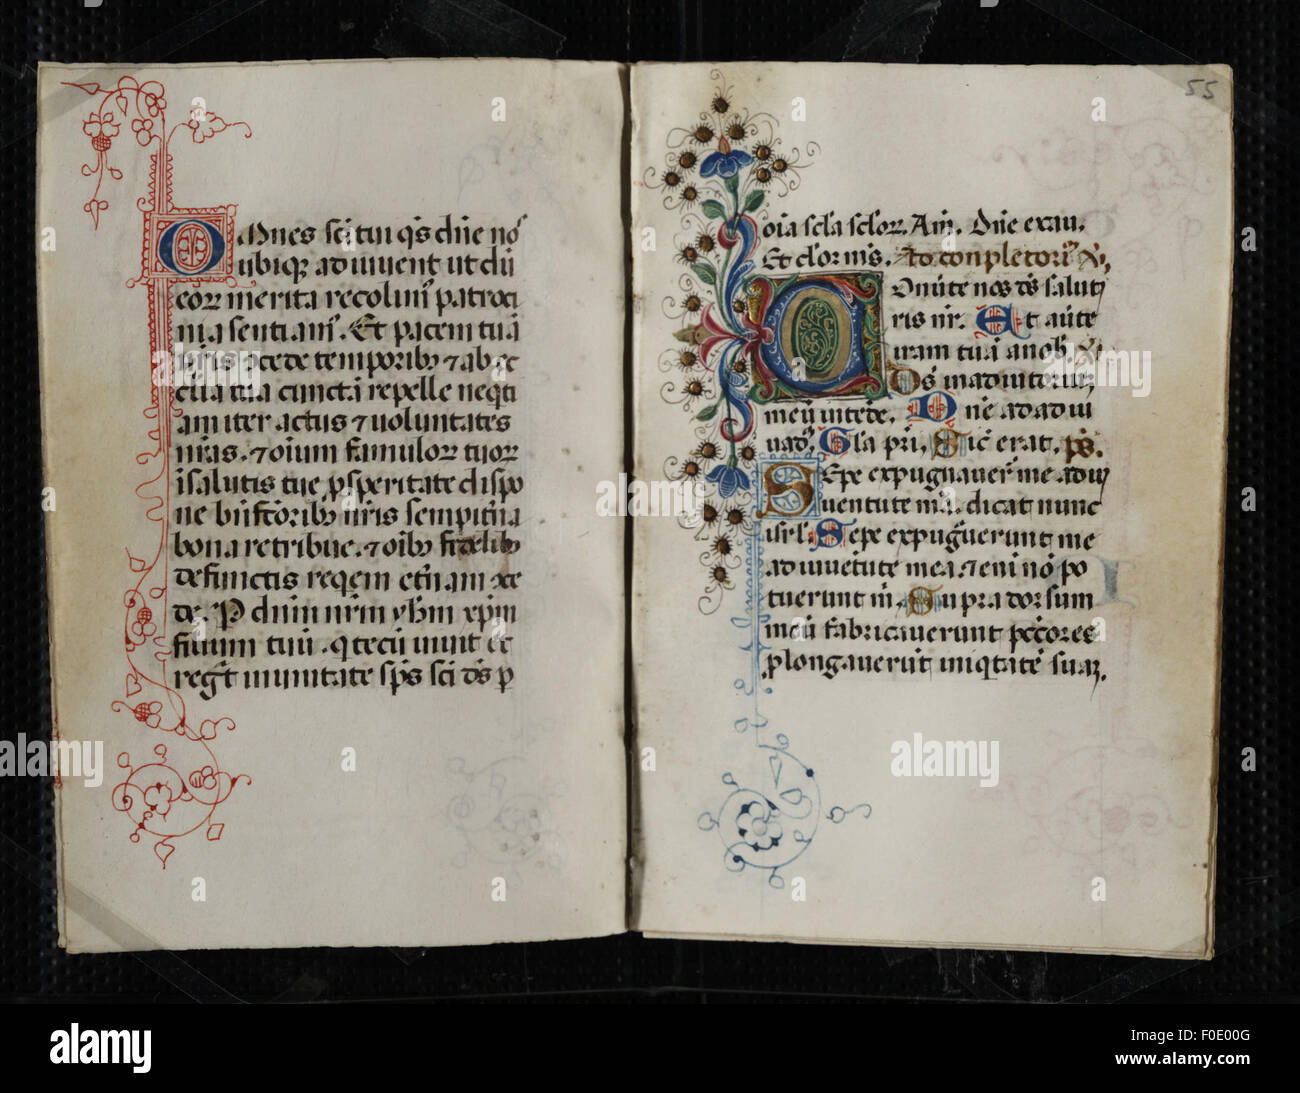 Omnes sc̄i tui q̄s dn̄e no
ubiqꝫ adiuvent ut dū
eoꝝ merita recolim̄ patroci
nia sentiam̄. Et pacem tuā
nr̄is ꝯcede temporibꝫ ⁊ ab ec
clīa tua cunctā repelle neqti
am iter actus ⁊ uoluntates
nr̄as. ⁊ oīum famuloꝝ tuoꝝ
ī salutis tue ꝓsperitate dispo
ne bn̄fctoribꝫ nr̄is sempitn̄a
bona retribue. ⁊ oībꝫ fidelibꝫ
defunctis reqēm etn̄am ꝯce
de. P dn̄um nr̄m yhm xp̄m
filium tuū. q tecū vivit et
regn̄t in unitate sp̄s sc̄i d̄s p
55
oīa scl̄a scl̄oꝝ. Am̄. Dn̄e exau.
Et cl̄or m̄s. Ad conpletoriū.
Conūte nos d̄s salut
ris nr̄. Et aūte
iram tuā a nob̄.
Ds̄ in adiutoriuꝫ
meū intēde. Dn̄e ad adiu
uād̄. Gl̄a pr̄i. Sic̄ erat. p̄s.
Sepe expugnauer̄ me a iu
uentute m̄a. dicat nunc
isrl̄. Sepe expuḡuerunt me
a iuuētute mea ⁊ enī nō po
tuerunt m̄. Supra dorsum
meū fabricaverunt pctōres
ꝓlongauerūt iniqtatē suaꝫ.
alamy
F0E00G
www.alamy.com